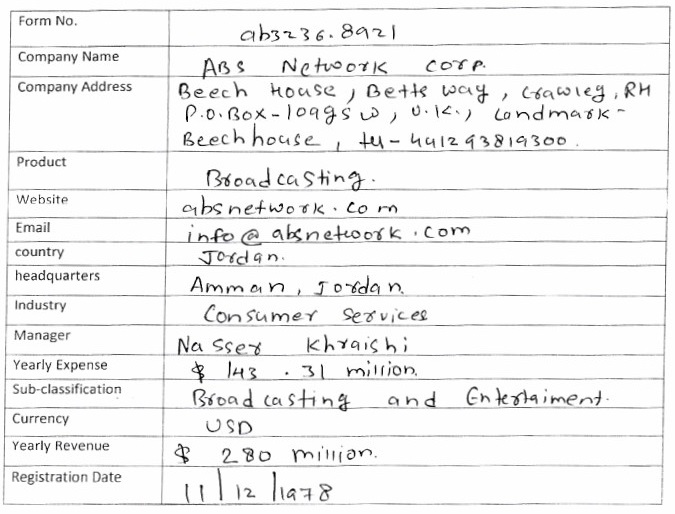 Form No. ab3236.8921
Company Name ABS Network Corp.
Company Address Beech House, Betts way, Crawley, RH
P.O.Box-109gsw, U.K., Landmark-
Beechhouse, tel-441293819300.
Product Broadcasting.
Website absnetwork.com
Email info@absnetwork.com
country Jordan.
headquarters Amman, Jordan.
Industry Consumer Services
Manager Nasser Khraishi
Yearly Expense $ 143.31 million.
Sub-classification Broadcasting and Entertaiment.
Currency USD
Yearly Revenue $ 280 million.
Registration Date 11/12/1978